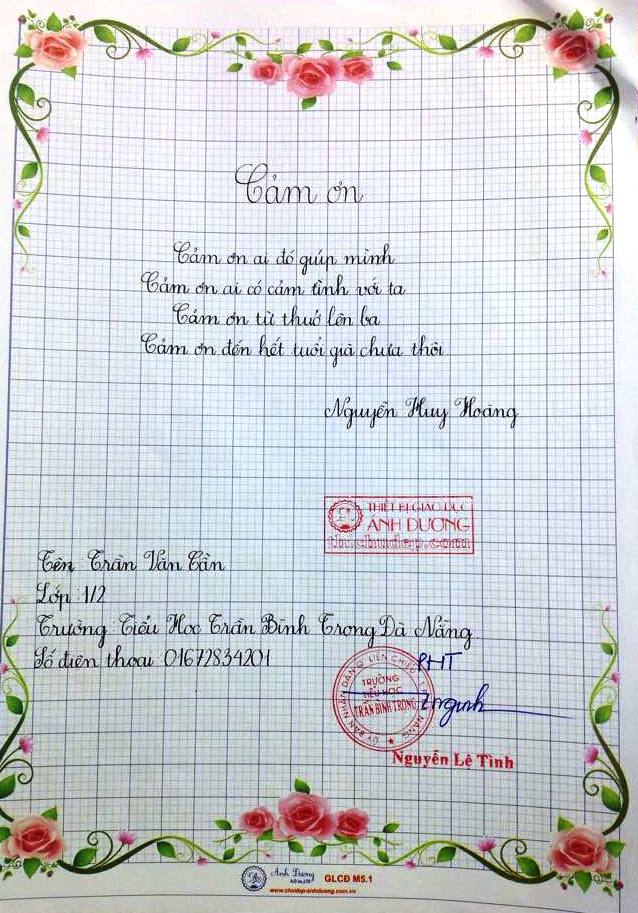 Cảm ơn
Cảm ơn ai đó giúp mình
Cảm ơn ai có cảm tình với ta
Cảm ơn từ thuở lên ba
Cảm ơn đến hết tuổi già chưa thôi
Nguyễn Huy Hoàng
THIẾT BỊ GIÁO DỤC
ÁNH DƯƠNG
thichudep.com
Tên Trần Văn Cần
Lớp 1/2
Trường Tiểu Học Trần Bình Trọng Đà Nẵng
Số điện thoại 01672834201
PHT
ỦY BAN NHÂN DÂN Q. LIÊN CHIỂU
TRƯỜNG
TIỂU HỌC
TRẦN BÌNH TRỌNG
Nguyễn Lệ Tình
Ánh Dương
GLCĐ M5.1
www.chudep-anhduong.com.vn